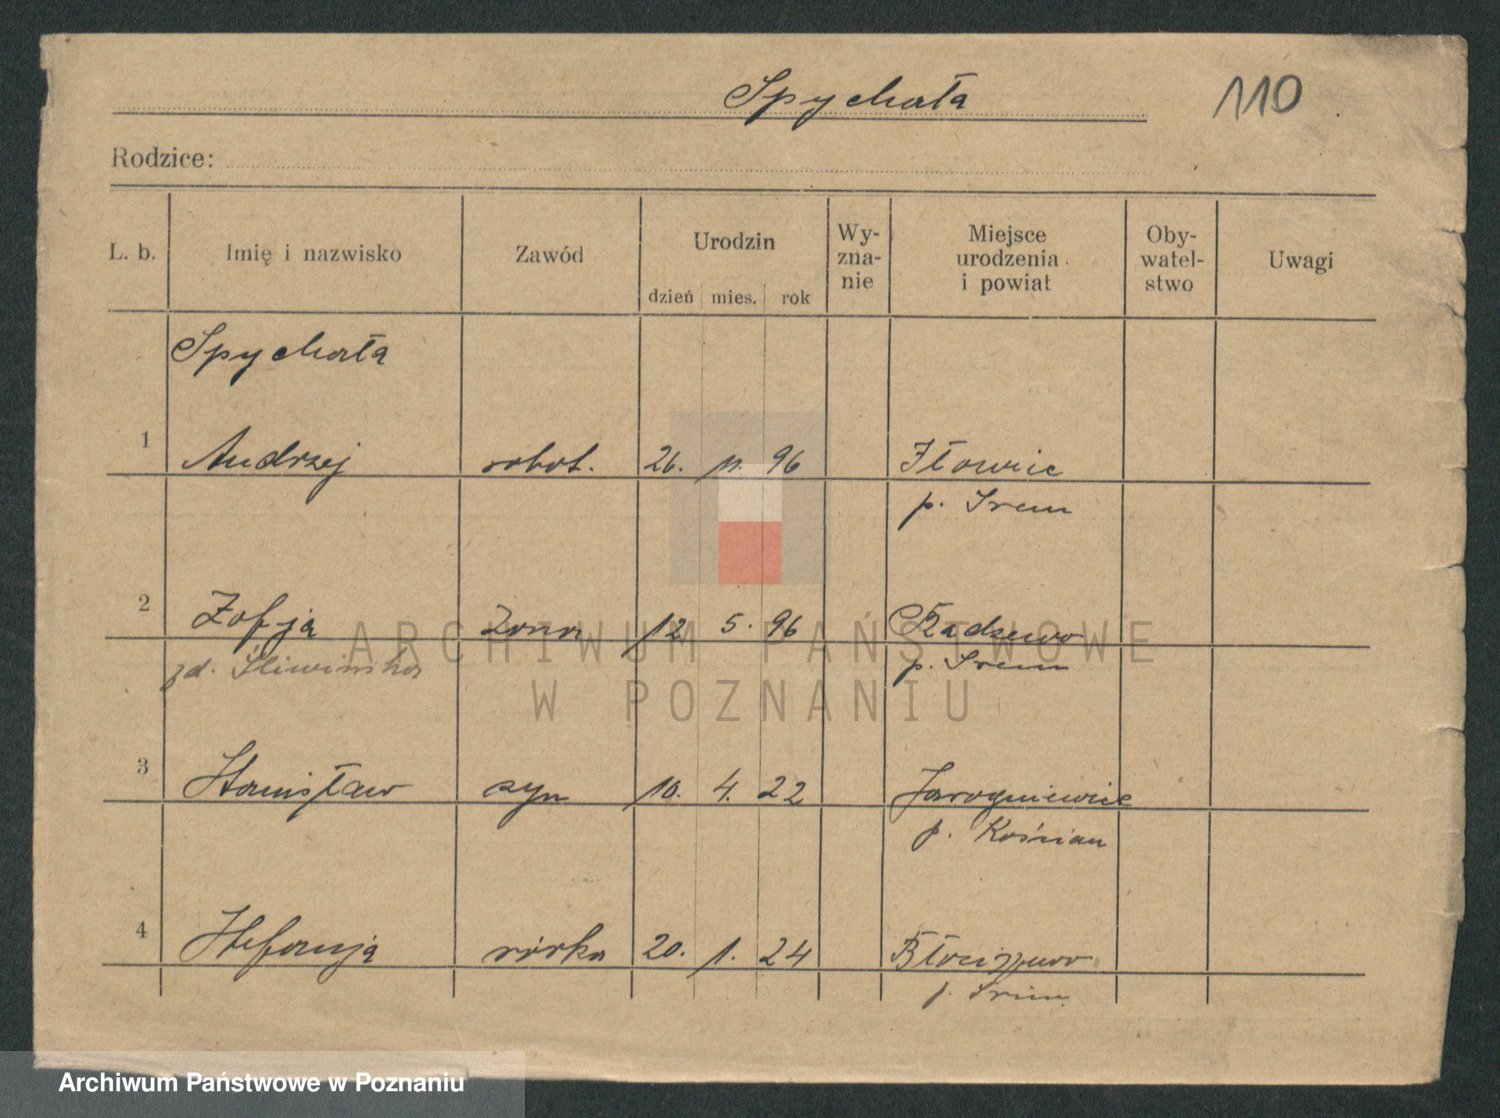 Spychała
110
Rodzice:
L. b. Imię i nazwisko Zawód Urodzin dzień mies. rok Wy-zna-nie Miejsce urodzenia i powiat Oby-watel-stwo Uwagi
Spychała
1 Andrzej robot. 26. 11. 96 Iłowiec
p. Śrem
2 Zofja żona 12 5. 96 Radzewo
zd. Śliwińska p. Śrem
3 Stanisław syn 10. 4. 22 Jarogniewice
p. Kościan
4 Stefanja córka 20. 1. 24 Błociszewo
p. Śrem
ARCHIWUM PAŃSTWOWE
W POZNANIU
Archiwum Państwowe w Poznaniu